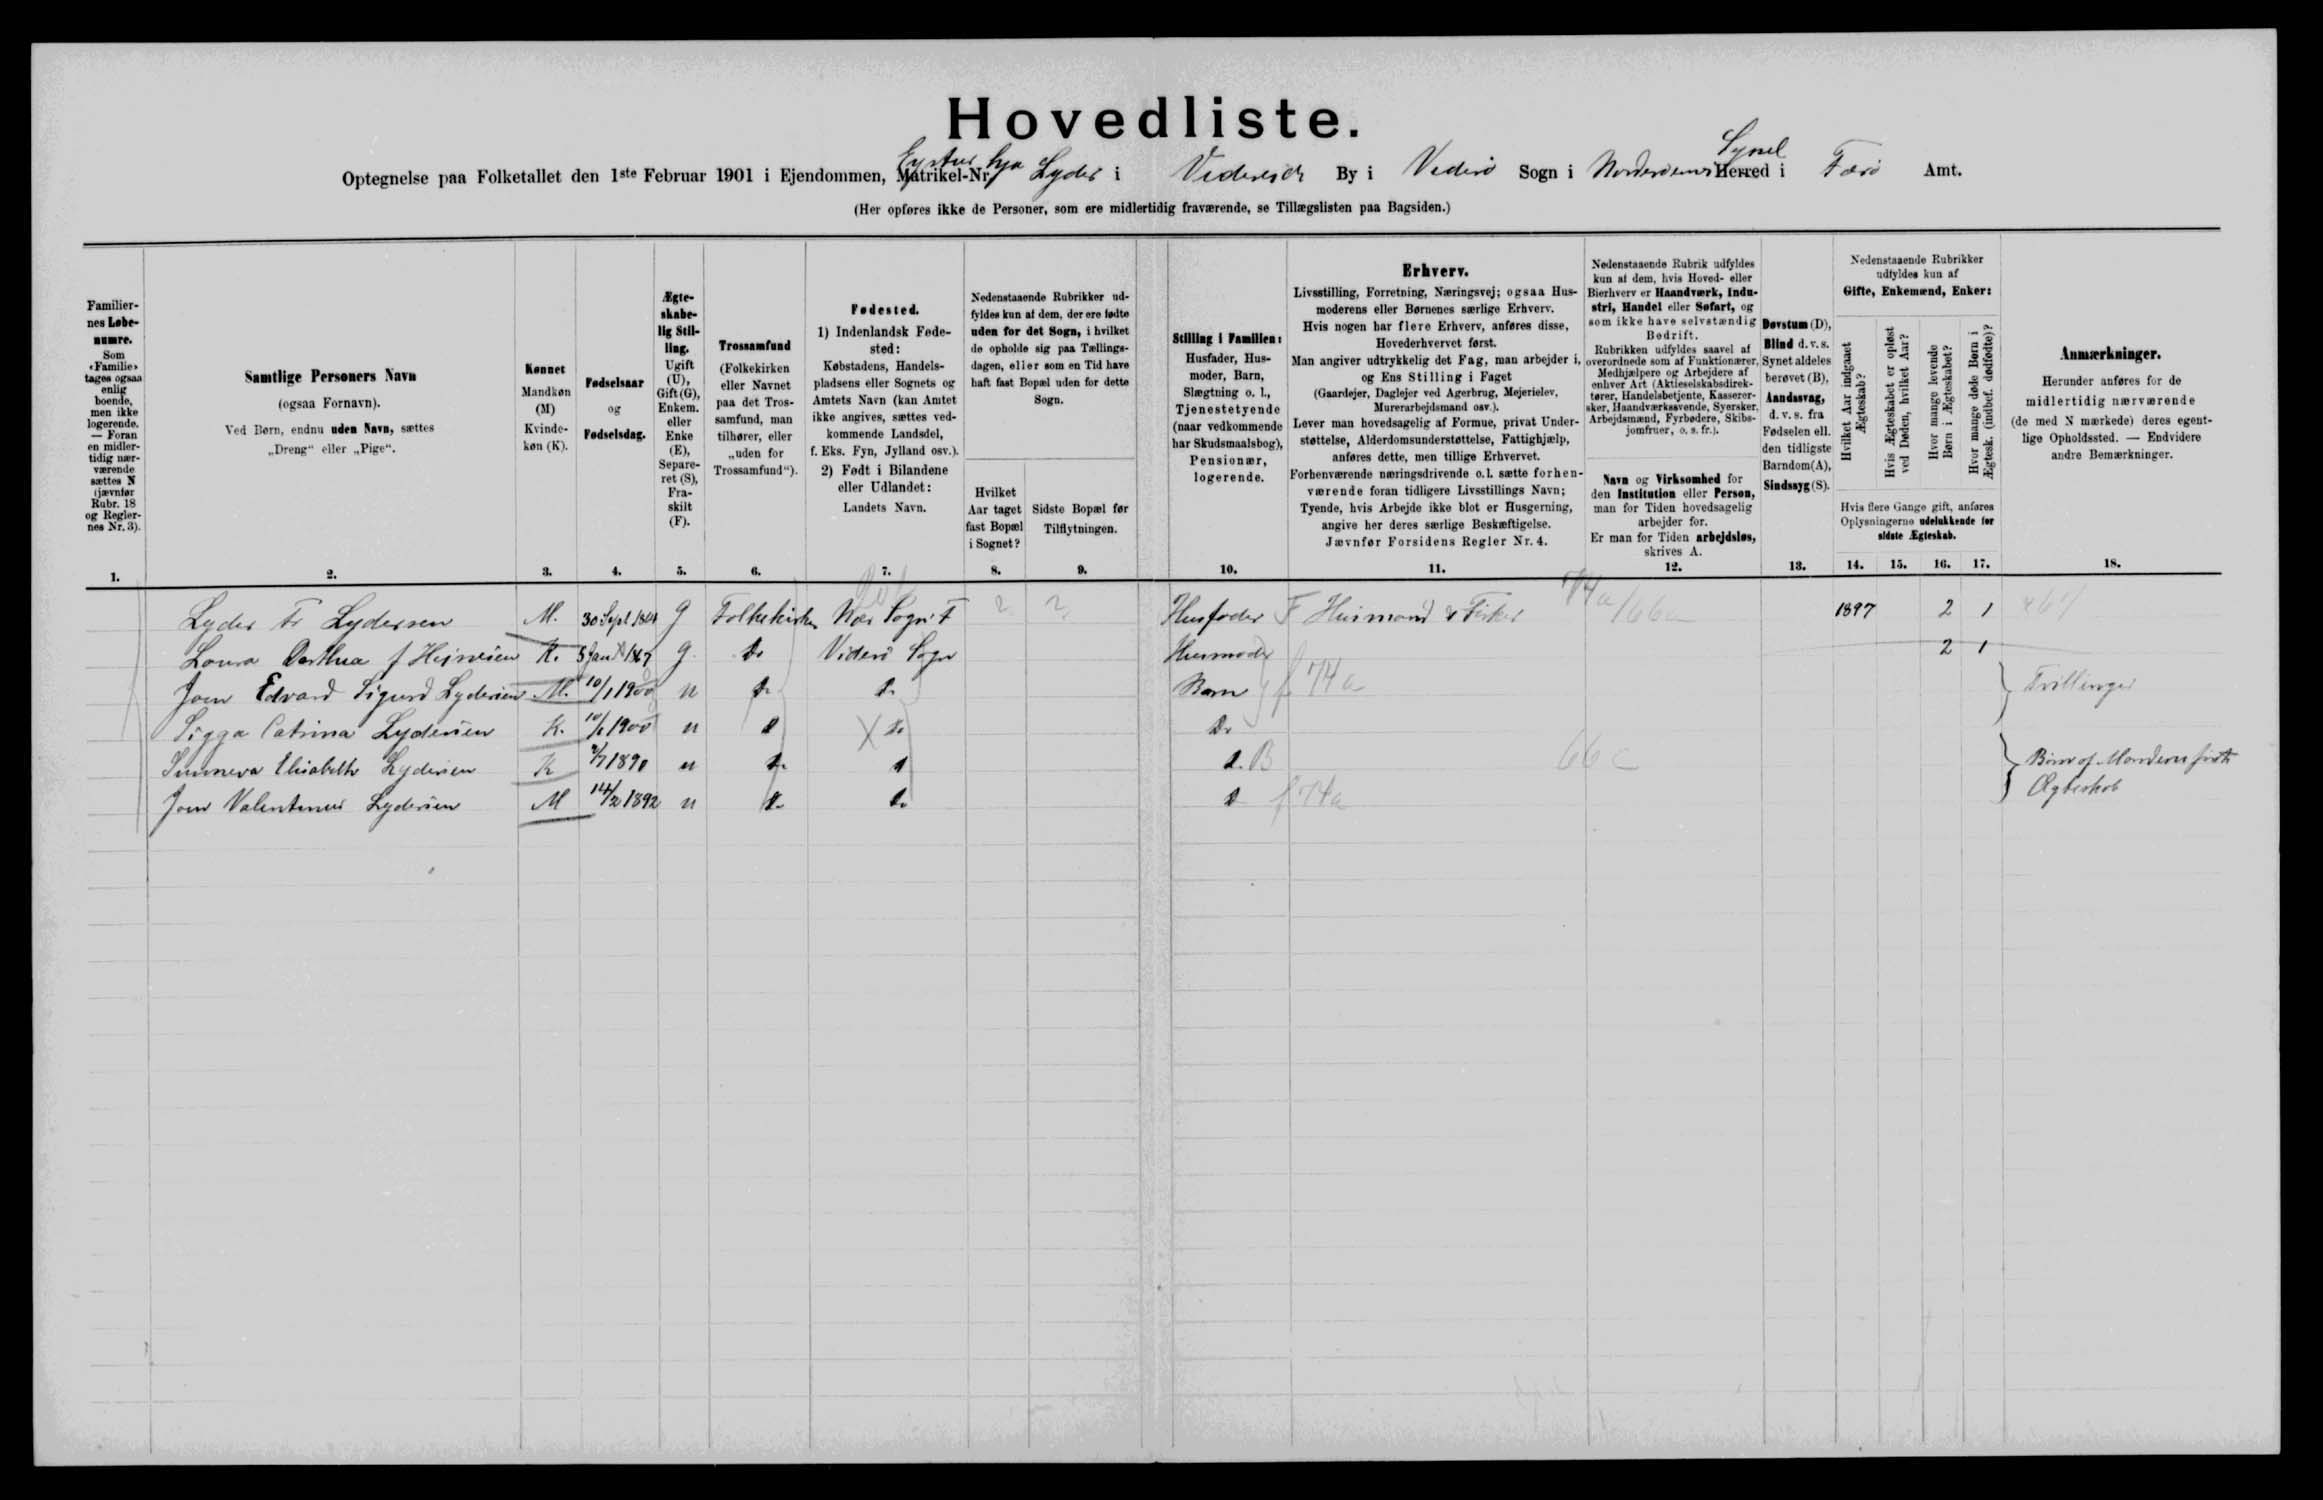 Hovedliste.
Optegnelse paa Folketallet den 1ste Februar 1901 i Ejendommen, Matrikel-Nr. Eystur hja Lyder i Videreide By i Viderø Sogn i Norderøernes Herred Syssel i Færø Amt.
(Her opføres ikke de Personer, som ere midlertidig fraværende, se Tillægslisten paa Bagsiden.)
Familiernes Løbenumre.
Som «Familie» tages ogsaa enlig boende, men ikke logerende. — Foran en midlertidig nærværende sættes N (jævnfør Rubr. 18 og Reglernes Nr. 3).
Samtlige Personers Navn
(ogsaa Fornavn).
Ved Børn, endnu uden Navn, sættes
„Dreng“ eller „Pige“.
Kønnet
Mandkøn (M)
Kvindekøn (K).
Fødselsaar
og
Fødselsdag.
Ægteskabelig Stilling.
Ugift (U), Gift (G), Enkem. eller Enke (E), Separeret (S), Fraskilt (F).
Trossamfund
(Folkekirken eller Navnet paa det Trossamfund, man tilhører, eller „uden for Trossamfund“).
Fødested.
1) Indenlandsk Fødested:
Købstadens, Handelspladsens eller Sognets og Amtets Navn (kan Amtet ikke angives, sættes vedkommende Landsdel, f. Eks. Fyn, Jylland osv.).
2) Født i Bilandene eller Udlandet:
Landets Navn.
Nedenstaaende Rubrikker udfyldes kun af dem, der ere fødte uden for det Sogn, i hvilket de opholde sig paa Tællingsdagen, eller som en Tid have haft fast Bopæl uden for dette Sogn.
Hvilket Aar taget fast Bopæl i Sognet?
Sidste Bopæl før Tilflytningen.
Stilling i Familien:
Husfader, Husmoder, Barn, Slægtning o. l., Tjenestetyende (naar vedkommende har Skudsmaalsbog), Pensionær, logerende.
Erhverv.
Livsstilling, Forretning, Næringsvej; ogsaa Husmoderens eller Børnenes særlige Erhverv.
Hvis nogen har flere Erhverv, anføres disse, Hovederhvervet først.
Man angiver udtrykkelig det Fag, man arbejder i, og Ens Stilling i Faget
(Gaardejer, Daglejer ved Agerbrug, Mejerielev, Murerarbejdsmand osv.).
Lever man hovedsagelig af Formue, privat Understøttelse, Alderdomsunderstøttelse, Fattighjælp, anføres dette, men tillige Erhvervet.
Forhenværende næringsdrivende o. l. sætte forhenværende foran tidligere Livsstillings Navn;
Tyende, hvis Arbejde ikke blot er Husgerning, angive her deres særlige Beskæftigelse.
Jævnfør Forsidens Regler Nr. 4.
Nedenstaaende Rubrik udfyldes kun af dem, hvis Hoved- eller Bierhverv er Haandværk, Industri, Handel eller Søfart, og som ikke have selvstændig Bedrift.
Rubrikken udfyldes saavel af overordnede som af Funktionærer, Medhjælpere og Arbejdere af enhver Art (Aktieselskabsdirektører, Handelsbetjente, Kasserersker, Haandværkssvende, Syersker, Arbejdsmænd, Fyrbødere, Skibsjomfruer, o. s. fr.).
Navn og Virksomhed for den Institution eller Person, man for Tiden hovedsagelig arbejder for.
Er man for Tiden arbejdsløs, skrives A.
Døvstum (D), Blind d. v. s. Synet aldeles berøvet (B), Aandssvag, d. v. s. fra Fødselen ell. den tidligste Barndom (A), Sindssyg (S).
Nedenstaaende Rubrikker udfyldes kun af
Gifte, Enkemænd, Enker:
Hvilket Aar indgaaet Ægteskab?
Hvis Ægteskabet er opløst ved Døden, hvilket Aar?
Hvor mange levende Børn i Ægteskabet?
Hvor mange døde Børn i Ægtesk. (indbef. dødfødte)?
Hvis flere Gange gift, anføres Oplysningerne udelukkende for sidste Ægteskab.
Anmærkninger.
Herunder anføres for de midlertidig nærværende (de med N mærkede) deres egentlige Opholdssted. — Endvidere andre Bemærkninger.
1. 2. 3. 4. 5. 6. 7. 8. 9. 10. 11. 12. 13. 14. 15. 16. 17. 18.
Lyder Fr Lydersen M. 30 Sept 1864 G Folkekirken Næs Sogn F Husfader F Husmand & Fisker 74a/66c 1897 2 1
Loura Darthea f Heinesen K. 5 Jan 1867 G. Do Viderø Sogn Husmoder 2 1
Joen Edvard Sigurd Lydersen M. 10/1 1900 U Do Do Barn f 74a Tvillinger
Sigga Catrina Lydersen K. 10/1 1900 U D X Do Do
Sunneva Elisabeth Lydersen K 9/7 1890 U Do D D. B 66c Børn af Mandens første
Joen Valentinus Lydersen M 14/2 1892 U Do Do D f 74a Ægteskab